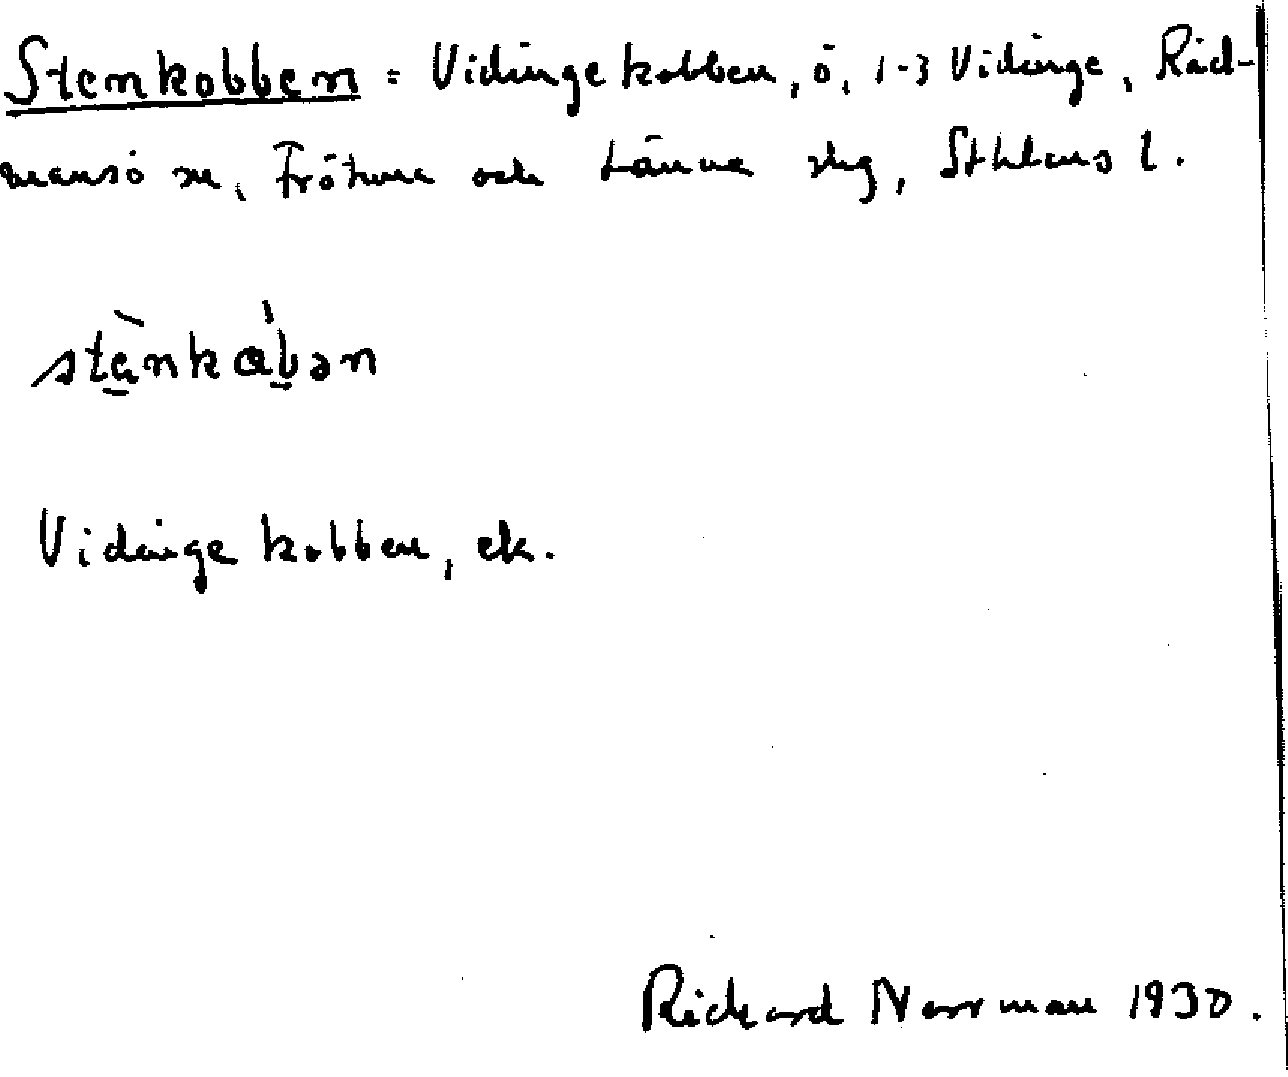 Stenkobben = Vidinge kobben, ö, 1-3 Vidinge, Råd-
mansö sn, Frötuna och Länna slg, Sthlms l.
stènkàbən
Vidinge kobben, ek.
Rickard Norrman 1930.